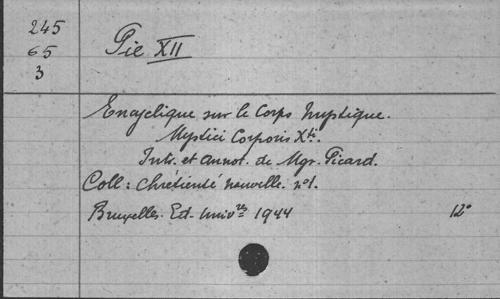 245
65
3
Pie XII
Encyclique sur le Corps Mystique.
Mystici Corporis Xti.
Intr. et annot. de Mgr. Picard.
Coll: Chrétienté nouvelle. no1.
Bruxelles. Ed. Univres 1944 12°